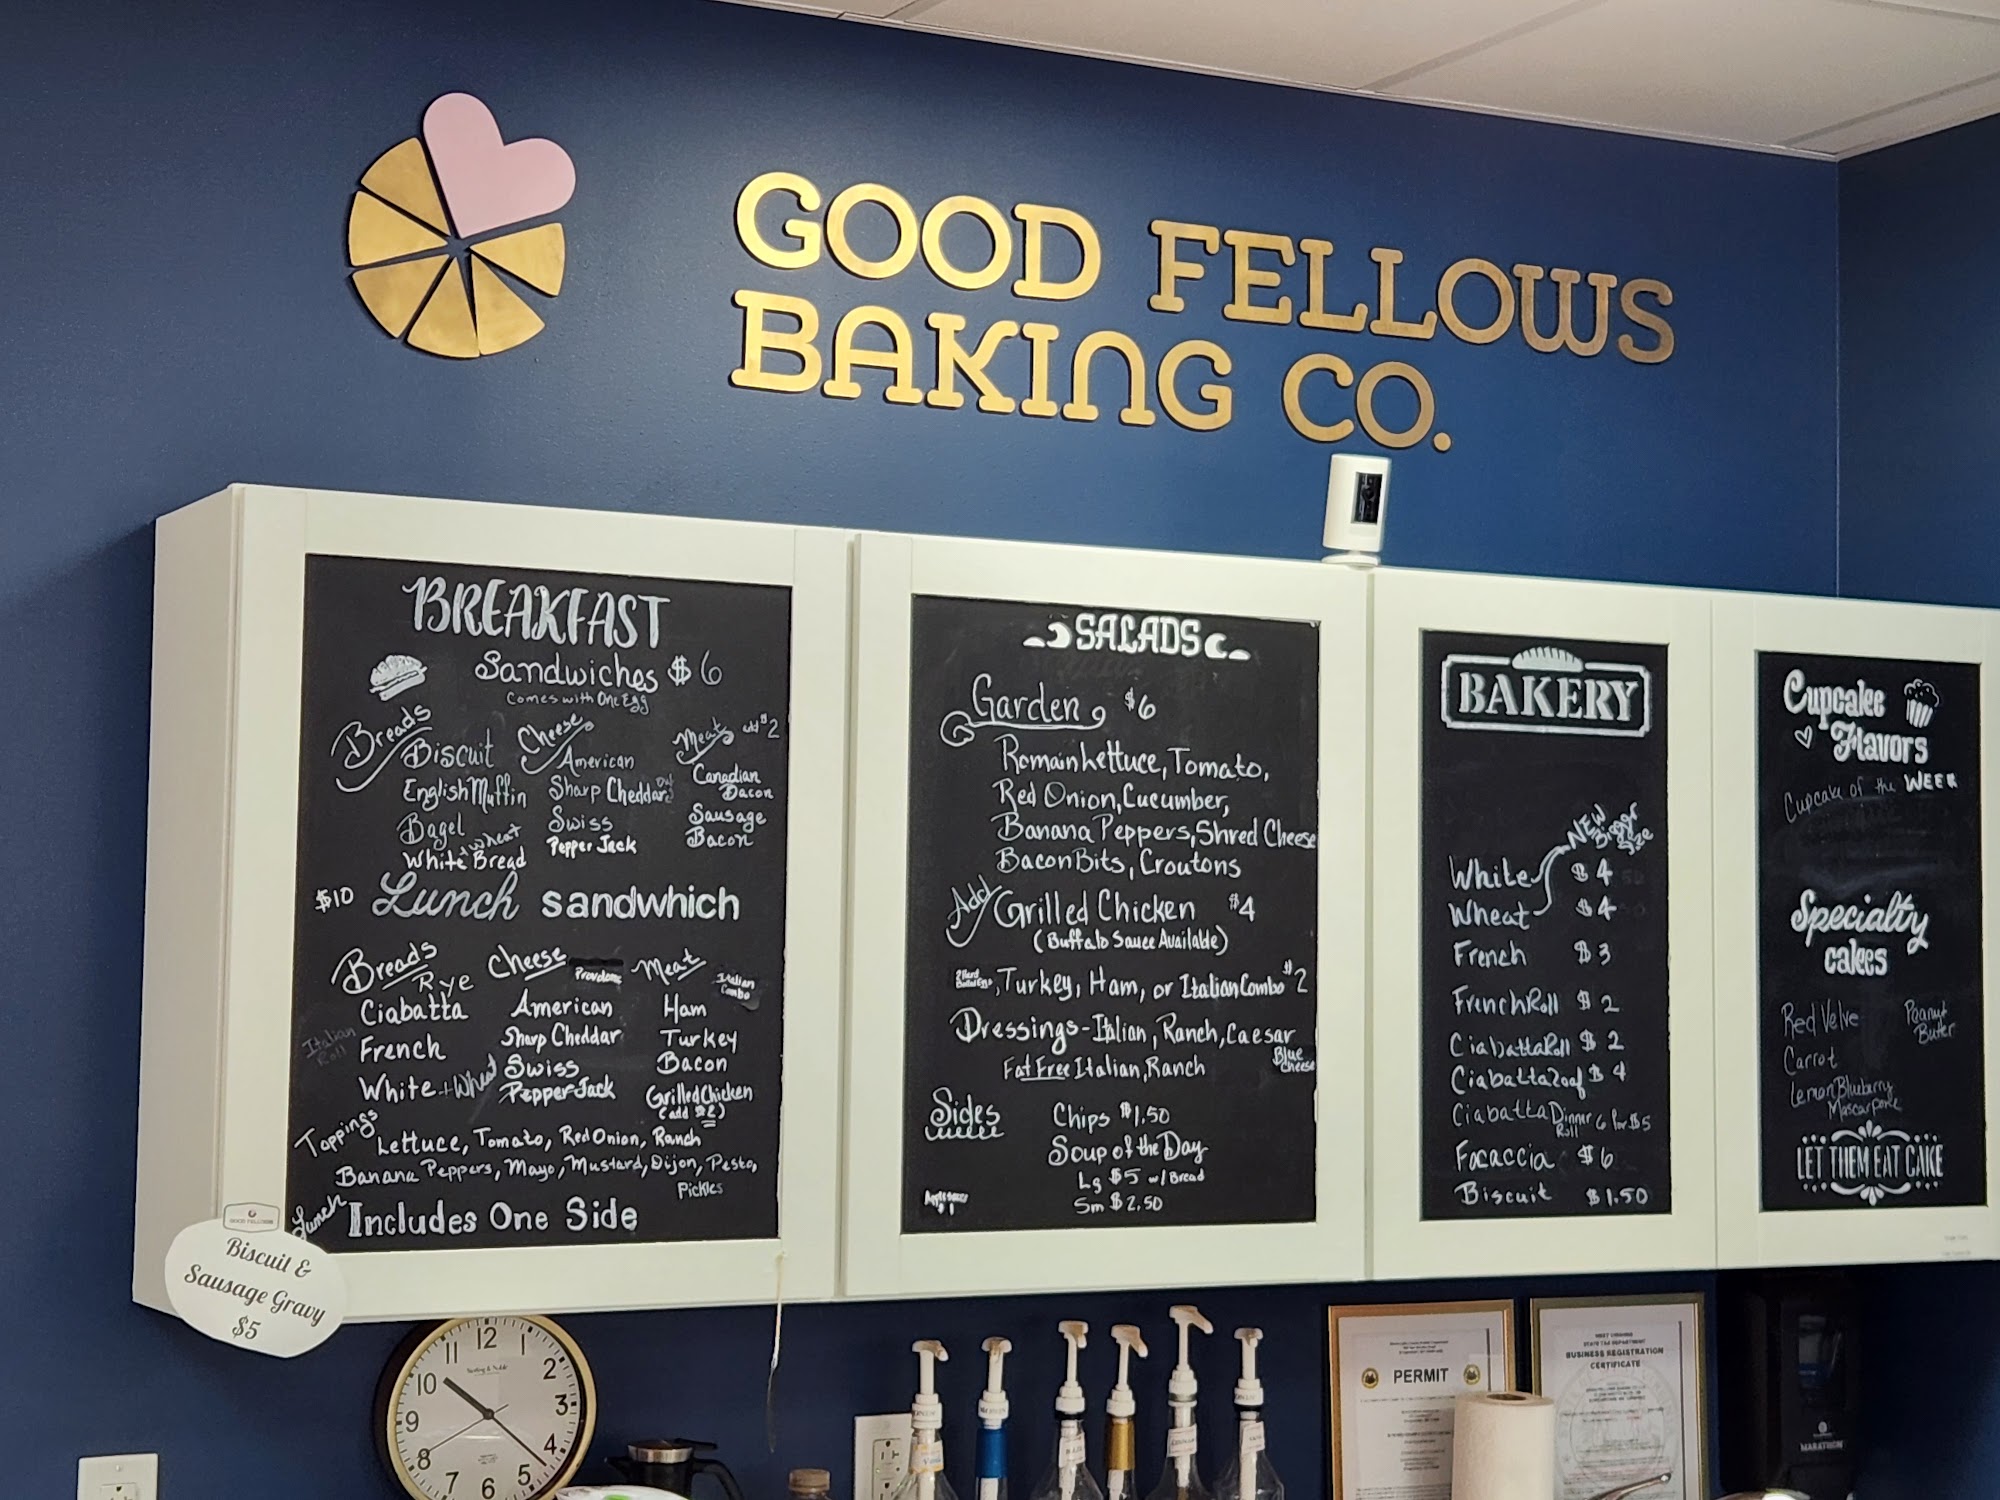 GOOD FELLOWS
BAKING CO.
BREAKFAST
Sandwiches $6
Comes with One Egg
Breads
Biscuit
English Muffin
Bagel
White + Wheat Bread
Cheese
American
Sharp Cheddar
Swiss
Pepper Jack
Meat add $2
Canadian
Bacon
Sausage
Bacon
$10 Lunch sandwhich
Breads
Rye
Ciabatta
Italian
Roll
French
White + Wheat
Cheese
Provolone
American
Sharp Cheddar
Swiss
Pepper Jack
Meat
Italian
Combo
Ham
Turkey
Bacon
Grilled Chicken
(add $2)
Toppings
Lettuce, Tomato, Red Onion, Ranch
Banana Peppers, Mayo, Mustard, Dijon, Pesto,
Pickles
Lunch Includes One Side
GOOD FELLOWS
Biscuit &
Sausage Gravy
$5
SALADS
Garden $6
Romain Lettuce, Tomato,
Red Onion, Cucumber,
Banana Peppers, Shred Cheese
Bacon Bits, Croutons
Add Grilled Chicken $4
(Buffalo Sauce Available)
2 Hard
Boiled Eggs, Turkey, Ham, or Italian Combo $2
Dressings - Italian, Ranch, Caesar
Fat Free Italian, Ranch
Blue
Cheese
Sides
Chips $1.50
Soup of the Day
Lg $5 w/ Bread
Sm $2.50
Applesauce
$1
BAKERY
NEW
Bigger
Size
White $4
Wheat $4
French $3
French Roll $2
Ciabatta Roll $2
Ciabatta Loaf $4
Ciabatta Dinner Roll 6 for $5
Focaccia $6
Biscuit $1.50
Cupcake
Flavors
Cupcake of the WEEK
Specialty
cakes
Red Velve
Peanut
Buter
Carrot
Lemon Blueberry
Mascarpone
LET THEM EAT CAKE
12
11
10
9
8
7
6
5
4
3
2
1
PERMIT
WEST VIRGINIA
STATE TAX DEPARTMENT
BUSINESS REGISTRATION
CERTIFICATE
MARATHON